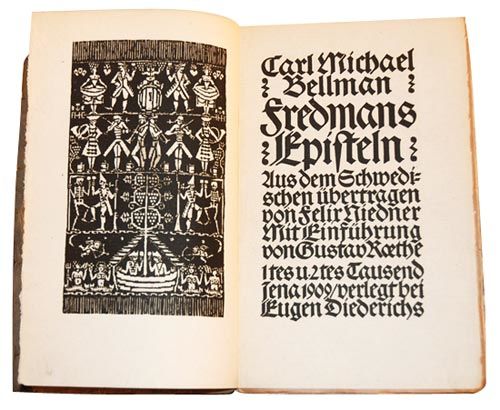 Carl Michael
Bellman
Fredmans
Episteln
Aus dem Schwedi-
schen übertragen
von Felix Niedner
Mit Einführung
von Gustav Rœthe
1tes u. 2tes Tausend
Jena 1909/verlegt bei
Eugen Diederichs